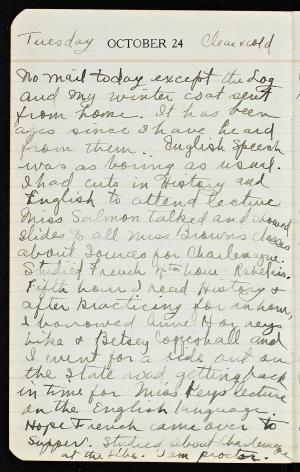 Tuesday OCTOBER 24 Clear & cold
No mail today except the Log
and my winter coat sent
from home. It has been
ages since I have heard
from them. English Speech
was as boring as usual.
I had cuts in History and
English to attend lecture
Miss Salmon talked and showed
slides to all Miss Brown's classes
about Sources for Charlemagne.
Studied French 4th hour - Rabelais.
Fifth hour I read History &
after practicing for an hour,
I borrowed Anne
bike & Betsey Coggeshall and
I went for a ride out on
the State road, getting back
in time for Miss Keys lecture
on the English language.
Hope French came over to
supper. Studied about Charlemagne
at the Libe. I am proctor.